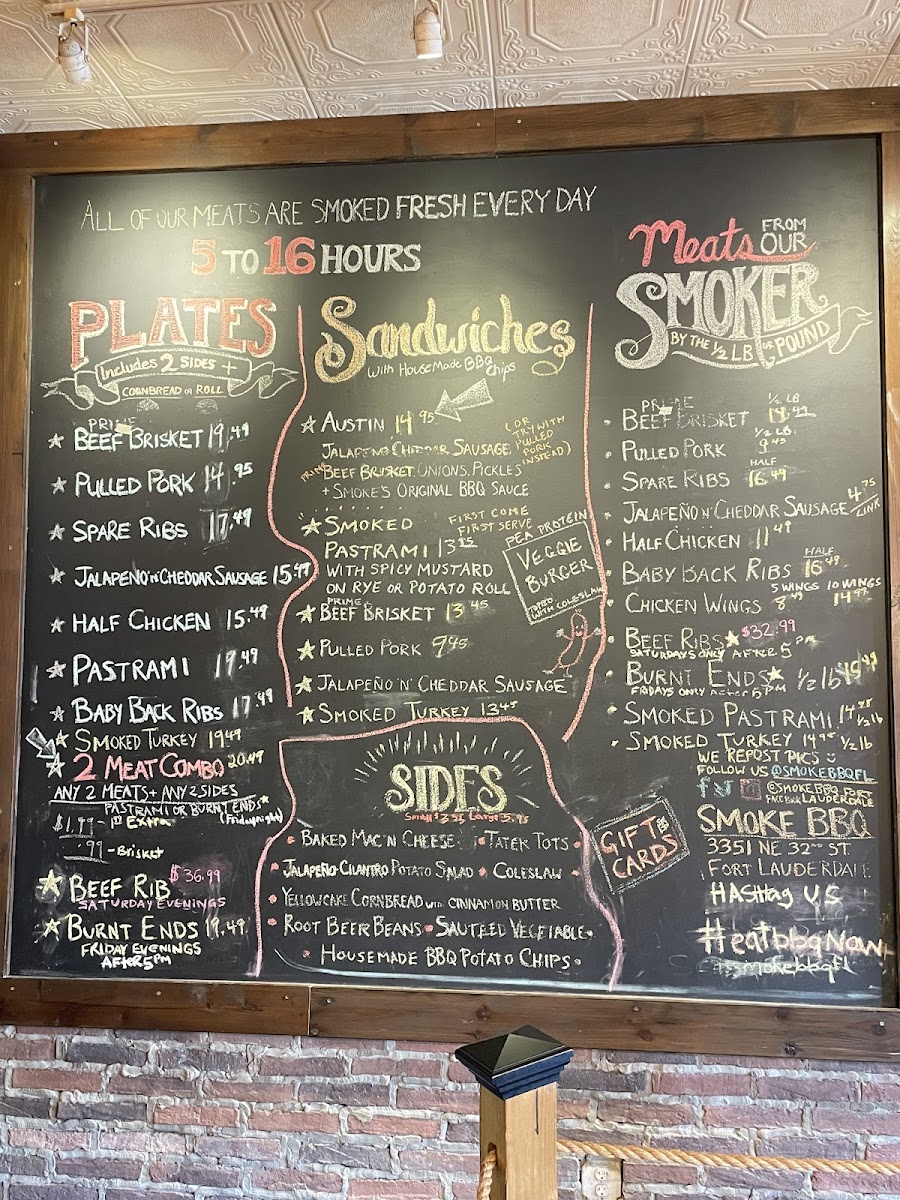 ALL OF OUR MEATS ARE SMOKED FRESH EVERY DAY
5 TO 16 HOURS
PLATES
Includes 2 SIDES +
CORNBREAD OR ROLL
PRIME
BEEF BRISKET 19.49
PULLED PORK 14.95
SPARE RIBS 17.49
JALAPENO'N'CHEDDAR SAUSAGE 15.49
HALF CHICKEN 15.49
PASTRAMI 19.49
BABY BACK RIBS 17.49
SMOKED TURKEY 19.49
2 MEAT COMBO 20.49
ANY 2 MEATS + ANY 2 SIDES
PASTRAMI OR BURNT ENDS
(Fridaynight)
$1.99 - Extra
.99 - Brisket
BEEF RIB $36.99
SATURDAY EVENINGS
BURNT ENDS 19.49
FRIDAY EVENINGS
AFTER 5PM
Sandwiches
with HouseMade BBQ Chips
AUSTIN 14.95
JALAPENO CHEDDAR SAUSAGE,
PRIME BEEF BRISKET, ONIONS, PICKLES
+ SMOKE'S ORIGINAL BBQ SAUCE
(OR TRY WITH
PULLED
PORK
INSTEAD)
SMOKED
PASTRAMI
FIRST COME
FIRST SERVE
WITH SPICY MUSTARD
ON RYE OR POTATO ROLL
PRIME
BEEF BRISKET 13.45
PULLED PORK 9.45
JALAPEÑO 'N' CHEDDAR SAUSAGE
SMOKED TURKEY 13.45
PEA PROTEIN
VEGGIE
BURGER
TOPPED
WITH COLESLAW
SIDES
BAKED MAC'N CHEESE
TATER TOTS
JALAPEÑO-CILANTRO POTATO SALAD
COLESLAW
YELLOWCAKE CORNBREAD WITH CINNAMON BUTTER
ROOT BEER BEANS
SAUTEED VEGETABLE
HOUSEMADE BBQ POTATO CHIPS
GIFT
CARDS
Meats FROM OUR
SMOKER
BY THE 1/2 LB OR POUND
PRIME
BEEF BRISKET 1/2 LB
PULLED PORK 1/2 LB. 9.45
SPARE RIBS HALF 16.49
JALAPEÑO N' CHEDDAR SAUSAGE 4.75/LINK
HALF CHICKEN 11.49
BABY BACK RIBS HALF 16.49
CHICKEN WINGS 5 WINGS 8.49 10 WINGS 14.99
BEEF RIBS $32.99
SATURDAYS ONLY AFTER 5PM
BURNT ENDS 1/2 lb
FRIDAYS ONLY AFTER 5PM
SMOKED PASTRAMI 1/2 lb
SMOKED TURKEY 1/2 lb
WE REPOST PICS
FOLLOW US @SMOKEBBQFL
@SMOKEBBQ FORT
LAUDERDALE
SMOKE BBQ
3351 NE 32ND ST
FORT LAUDERDALE
HASHtag US
#eatbbqNow
smokebbqfl